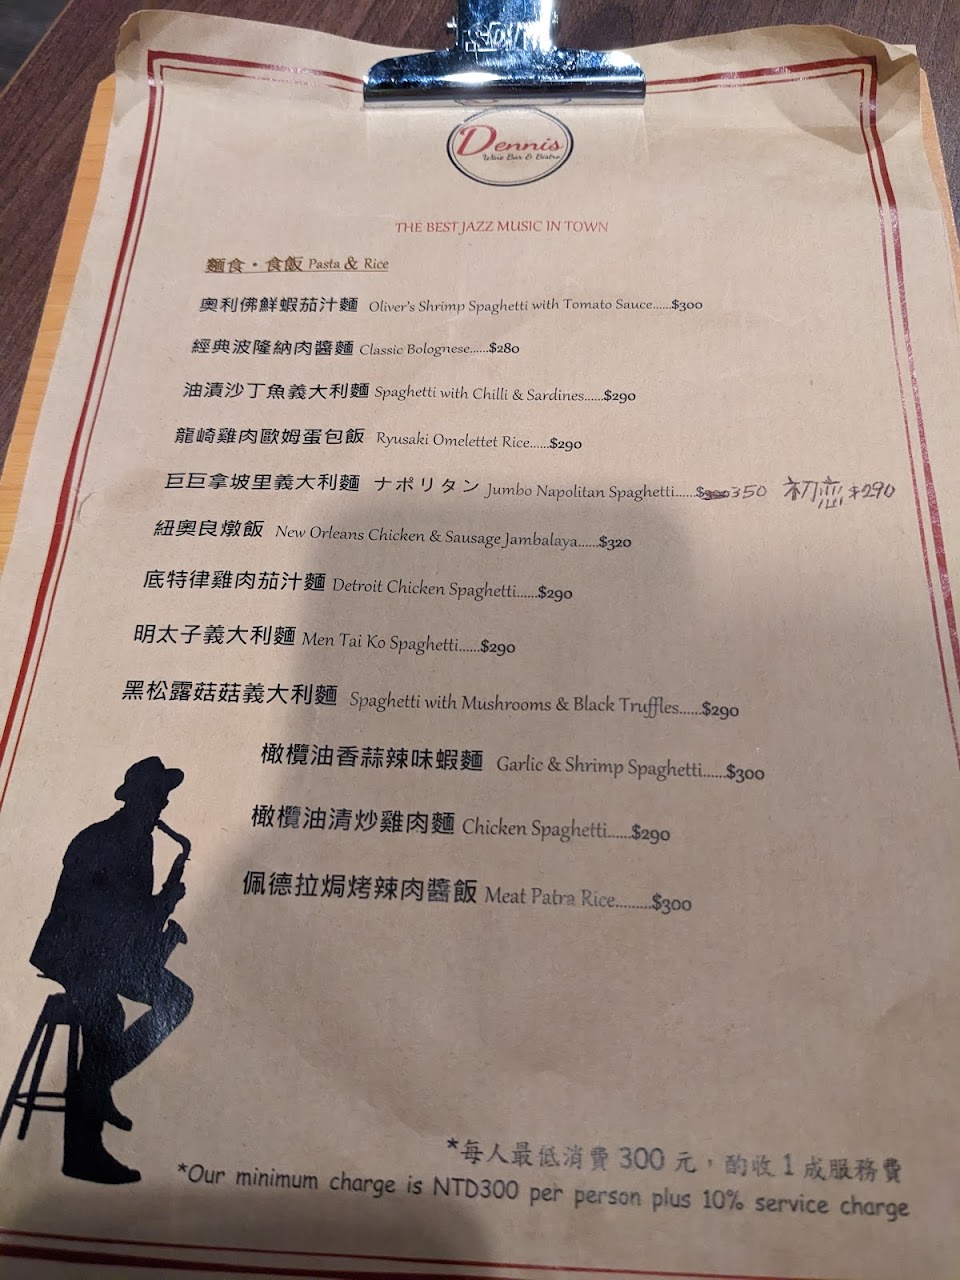 Dennis
Wine Bar & Bistro
THE BEST JAZZ MUSIC IN TOWN
麵食・食飯 Pasta & Rice
奧利佛鮮蝦茄汁麵 Oliver's Shrimp Spaghetti with Tomato Sauce......$300
經典波隆納肉醬麵 Classic Bolognese......$280
油漬沙丁魚義大利麵 Spaghetti with Chilli & Sardines......$290
龍崎雞肉歐姆蛋包飯 Ryusaki Omelettet Rice......$290
巨巨拿坡里義大利麵 ナポリタン Jumbo Napolitan Spaghetti......$300 350 初恋 $290
紐奧良燉飯 New Orleans Chicken & Sausage Jambalaya......$320
底特律雞肉茄汁麵 Detroit Chicken Spaghetti......$290
明太子義大利麵 Men Tai Ko Spaghetti......$290
黑松露菇菇義大利麵 Spaghetti with Mushrooms & Black Truffles......$290
橄欖油香蒜辣味蝦麵 Garlic & Shrimp Spaghetti......$300
橄欖油清炒雞肉麵 Chicken Spaghetti......$290
佩德拉焗烤辣肉醬飯 Meat Patra Rice.........$300
*每人最低消費 300 元，酌收 1 成服務費
*Our minimum charge is NTD300 per person plus 10% service charge